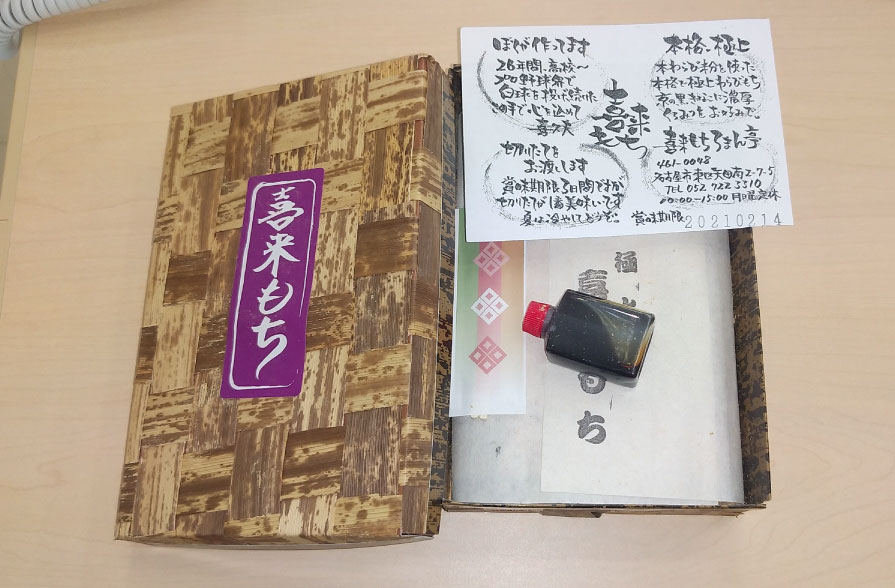 喜来もち
ぼくが作ってます
26年間、高校〜
プロ野球界で
白球を投げ続けた
この手で心を込めて
喜久夫
喜来もち
本格、極上
本わらび粉を使った
本格で極上わらびもち
京の黒きなこに濃厚
くろみつをお好みで。
切りたてを
お渡しします
賞味期限3日間ですが
切りたてが1番美味いです
夏は冷やしてどうぞ
喜来もちろまん亭
461-0048
名古屋市東区矢田南2-7-5
TEL 052 722 5510
00:00〜15:00 月曜定休
賞味期限
20210214
極上
喜
もち